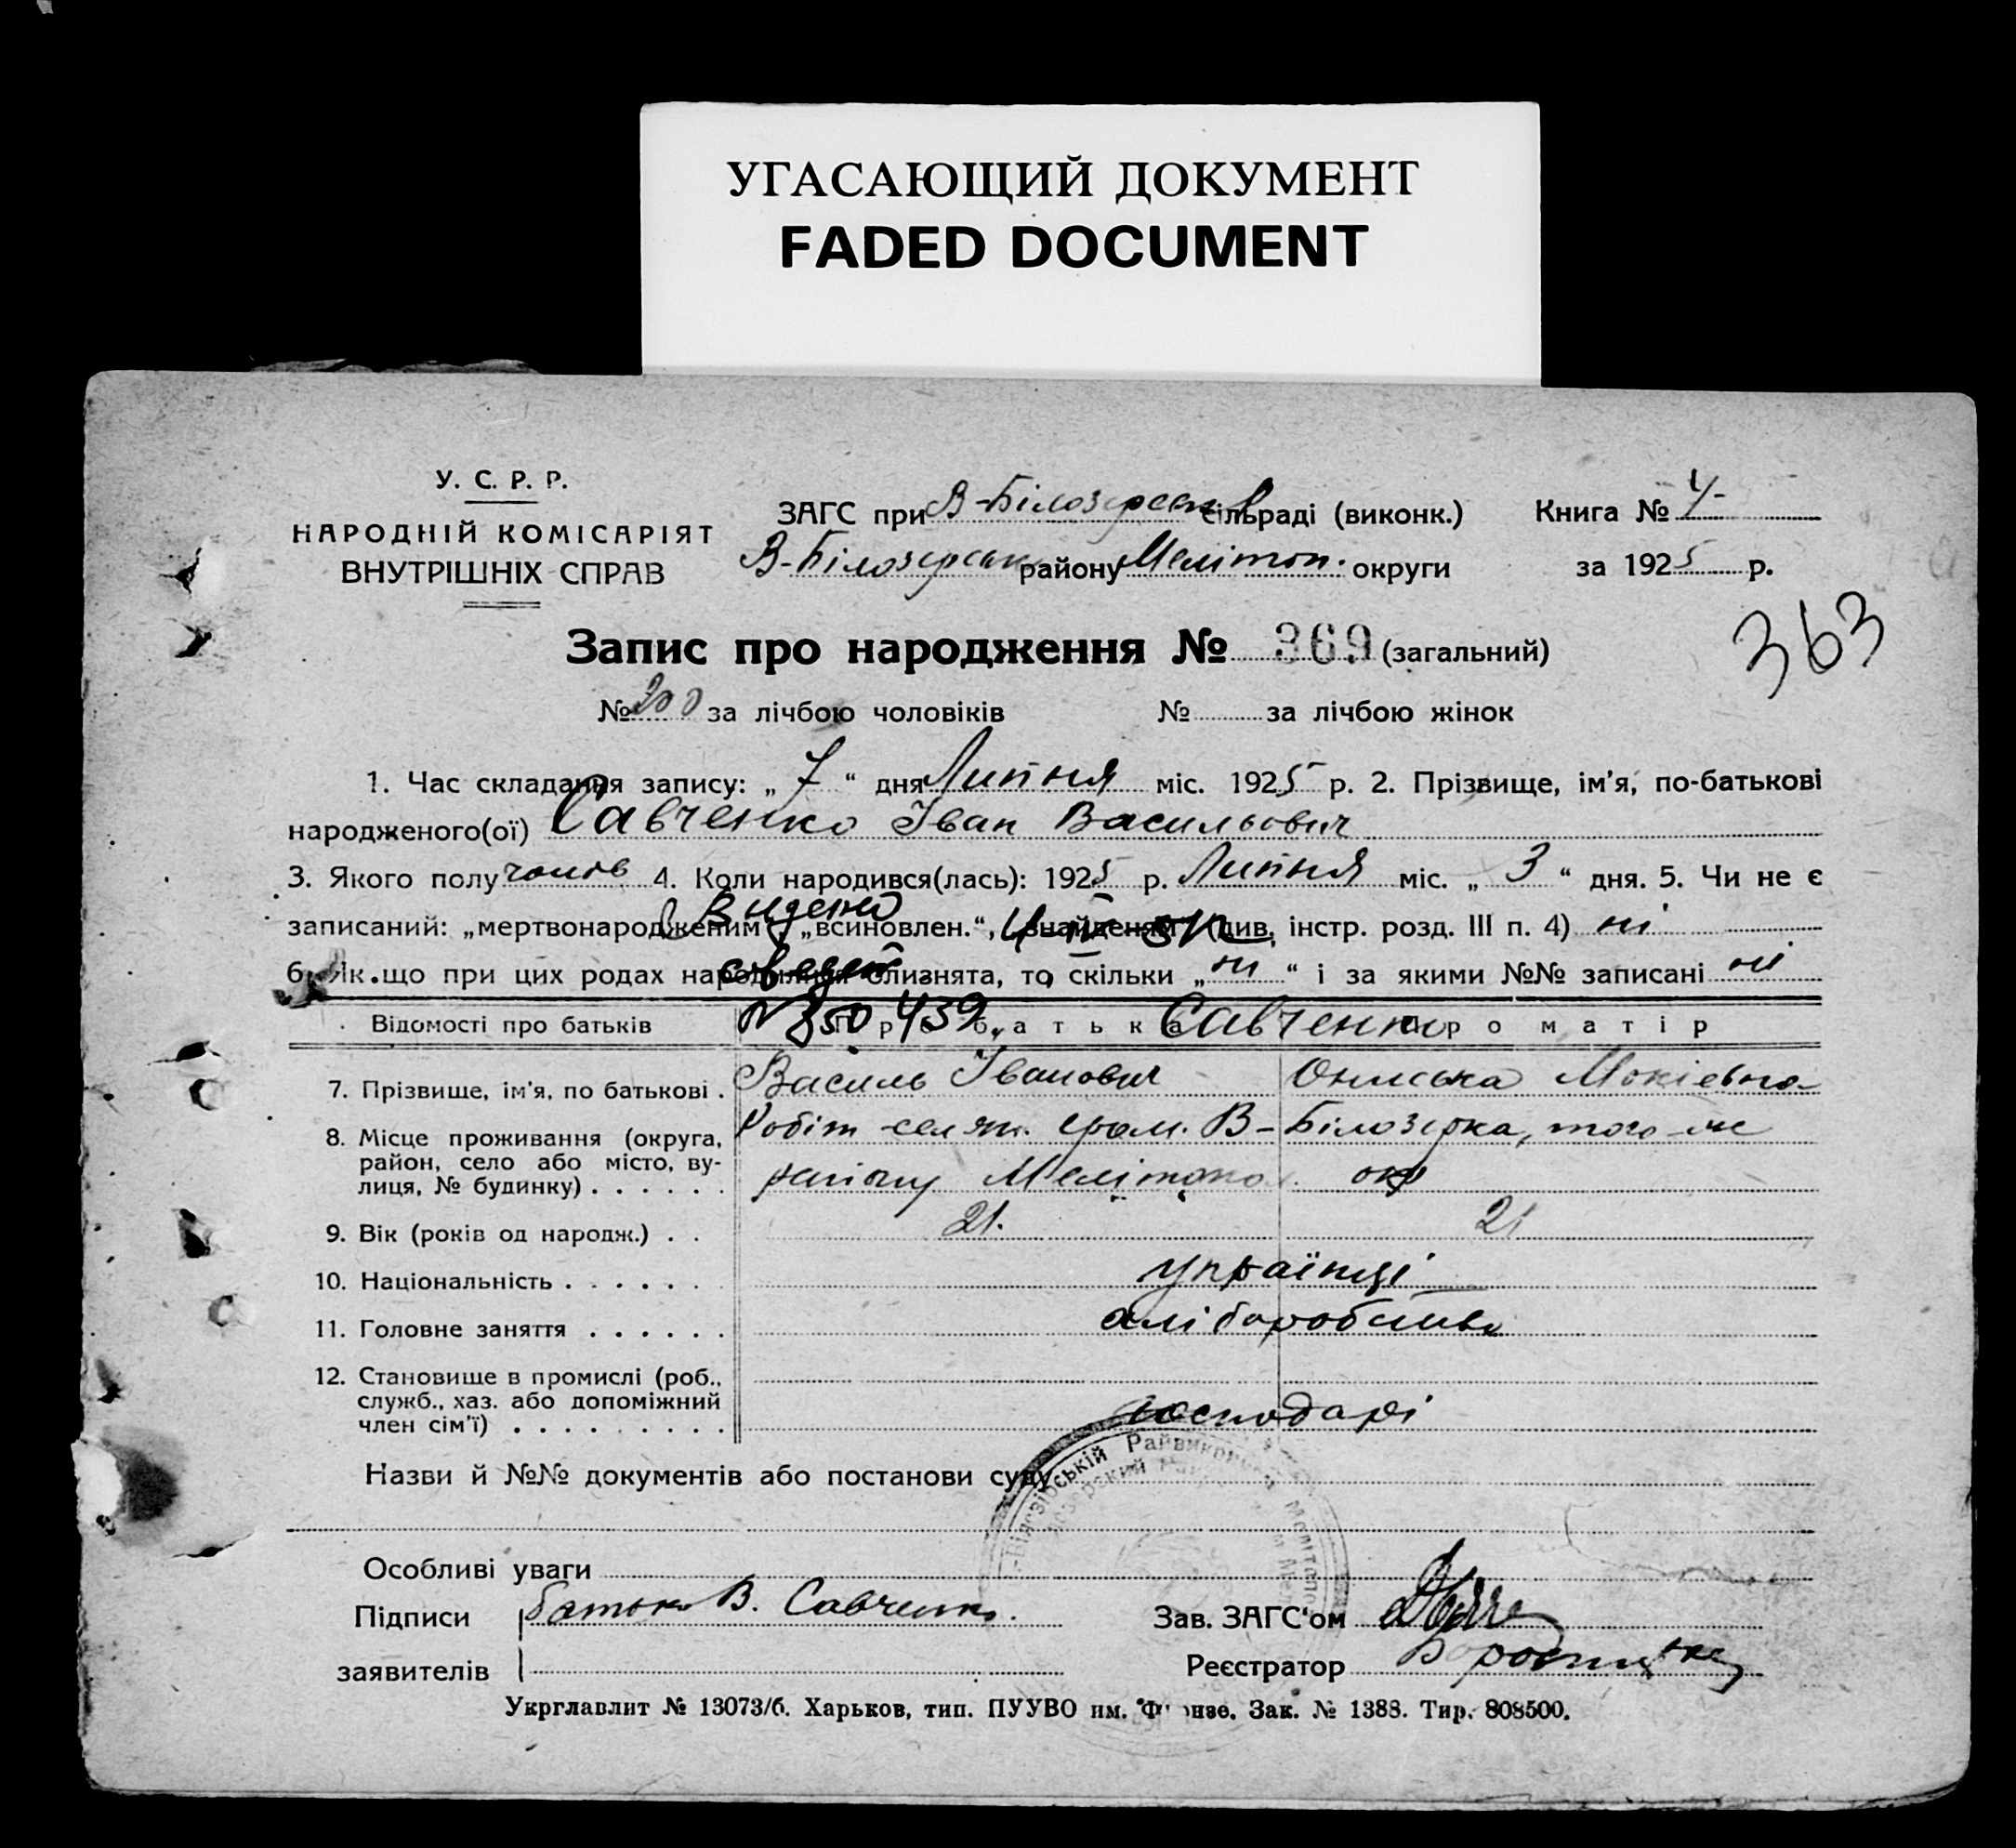 УГАСАЮЩИЙ ДОКУМЕНТ
FADED DOCUMENT
У. С. Р. Р.
НАРОДНІЙ КОМІСАРІЯТ
ВНУТРІШНІХ СПРАВ
ЗАГС при В-Білозерськ сільраді (виконк.)
В-Білозерськ району Мелітоп. округи
Книга № 4-
за 1925 р.
363
Запис про народження № 369 (загальний)
№ 200 за лічбою чоловіків № за лічбою жінок
1. Час складання запису: „ 7 “ дня Липня міс. 1925 р. 2. Прізвище, ім'я, по-батькові
народженого(ої) Савченко Іван Васильович
3. Якого полу чолов 4. Коли народився(лась): 1925 р. Липня міс. „ 3 “ дня. 5. Чи не є
записаний: „мертвонародженим“, „всиновлен.“, „знайденям“ (див. інстр. розд. III п. 4) ні
6. Як.що при цих родах народилися близнята, то скільки „ ні “ і за якими №№ записані ні
Відомості про батьків Про батька Савченко Про матір
7. Прізвище, ім'я, по батькові . Василь Іванович Ониська Мокієвна
8. Місце проживання (округа, район, село або місто, вулиця, № будинку) . . . . . . Робіт селян. гром. В-Білозерка, того-же
району Мелітопо окр
9. Вік (років од народж.) . . 21. 21
10. Національність . . . . . . . українці
11. Головне заняття . . . . . . хліборобство
12. Становище в промислі (роб., служб., хаз. або допоміжний член сім'ї) . . . . . . . . . господарі
Назви й №№ документів або постанови суду
Особливі уваги
Підписи батько В. Савченко. Зав. ЗАГС'ом
заявителів Реєстратор
Укрглавлит № 13073/б. Харьков, тип. ПУУВО им. Фрунзе. Зак. № 1388. Тир. 808500.